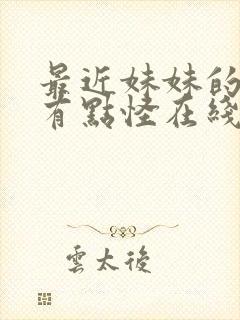 最近妹妹的
有點怪在綫
雲太後